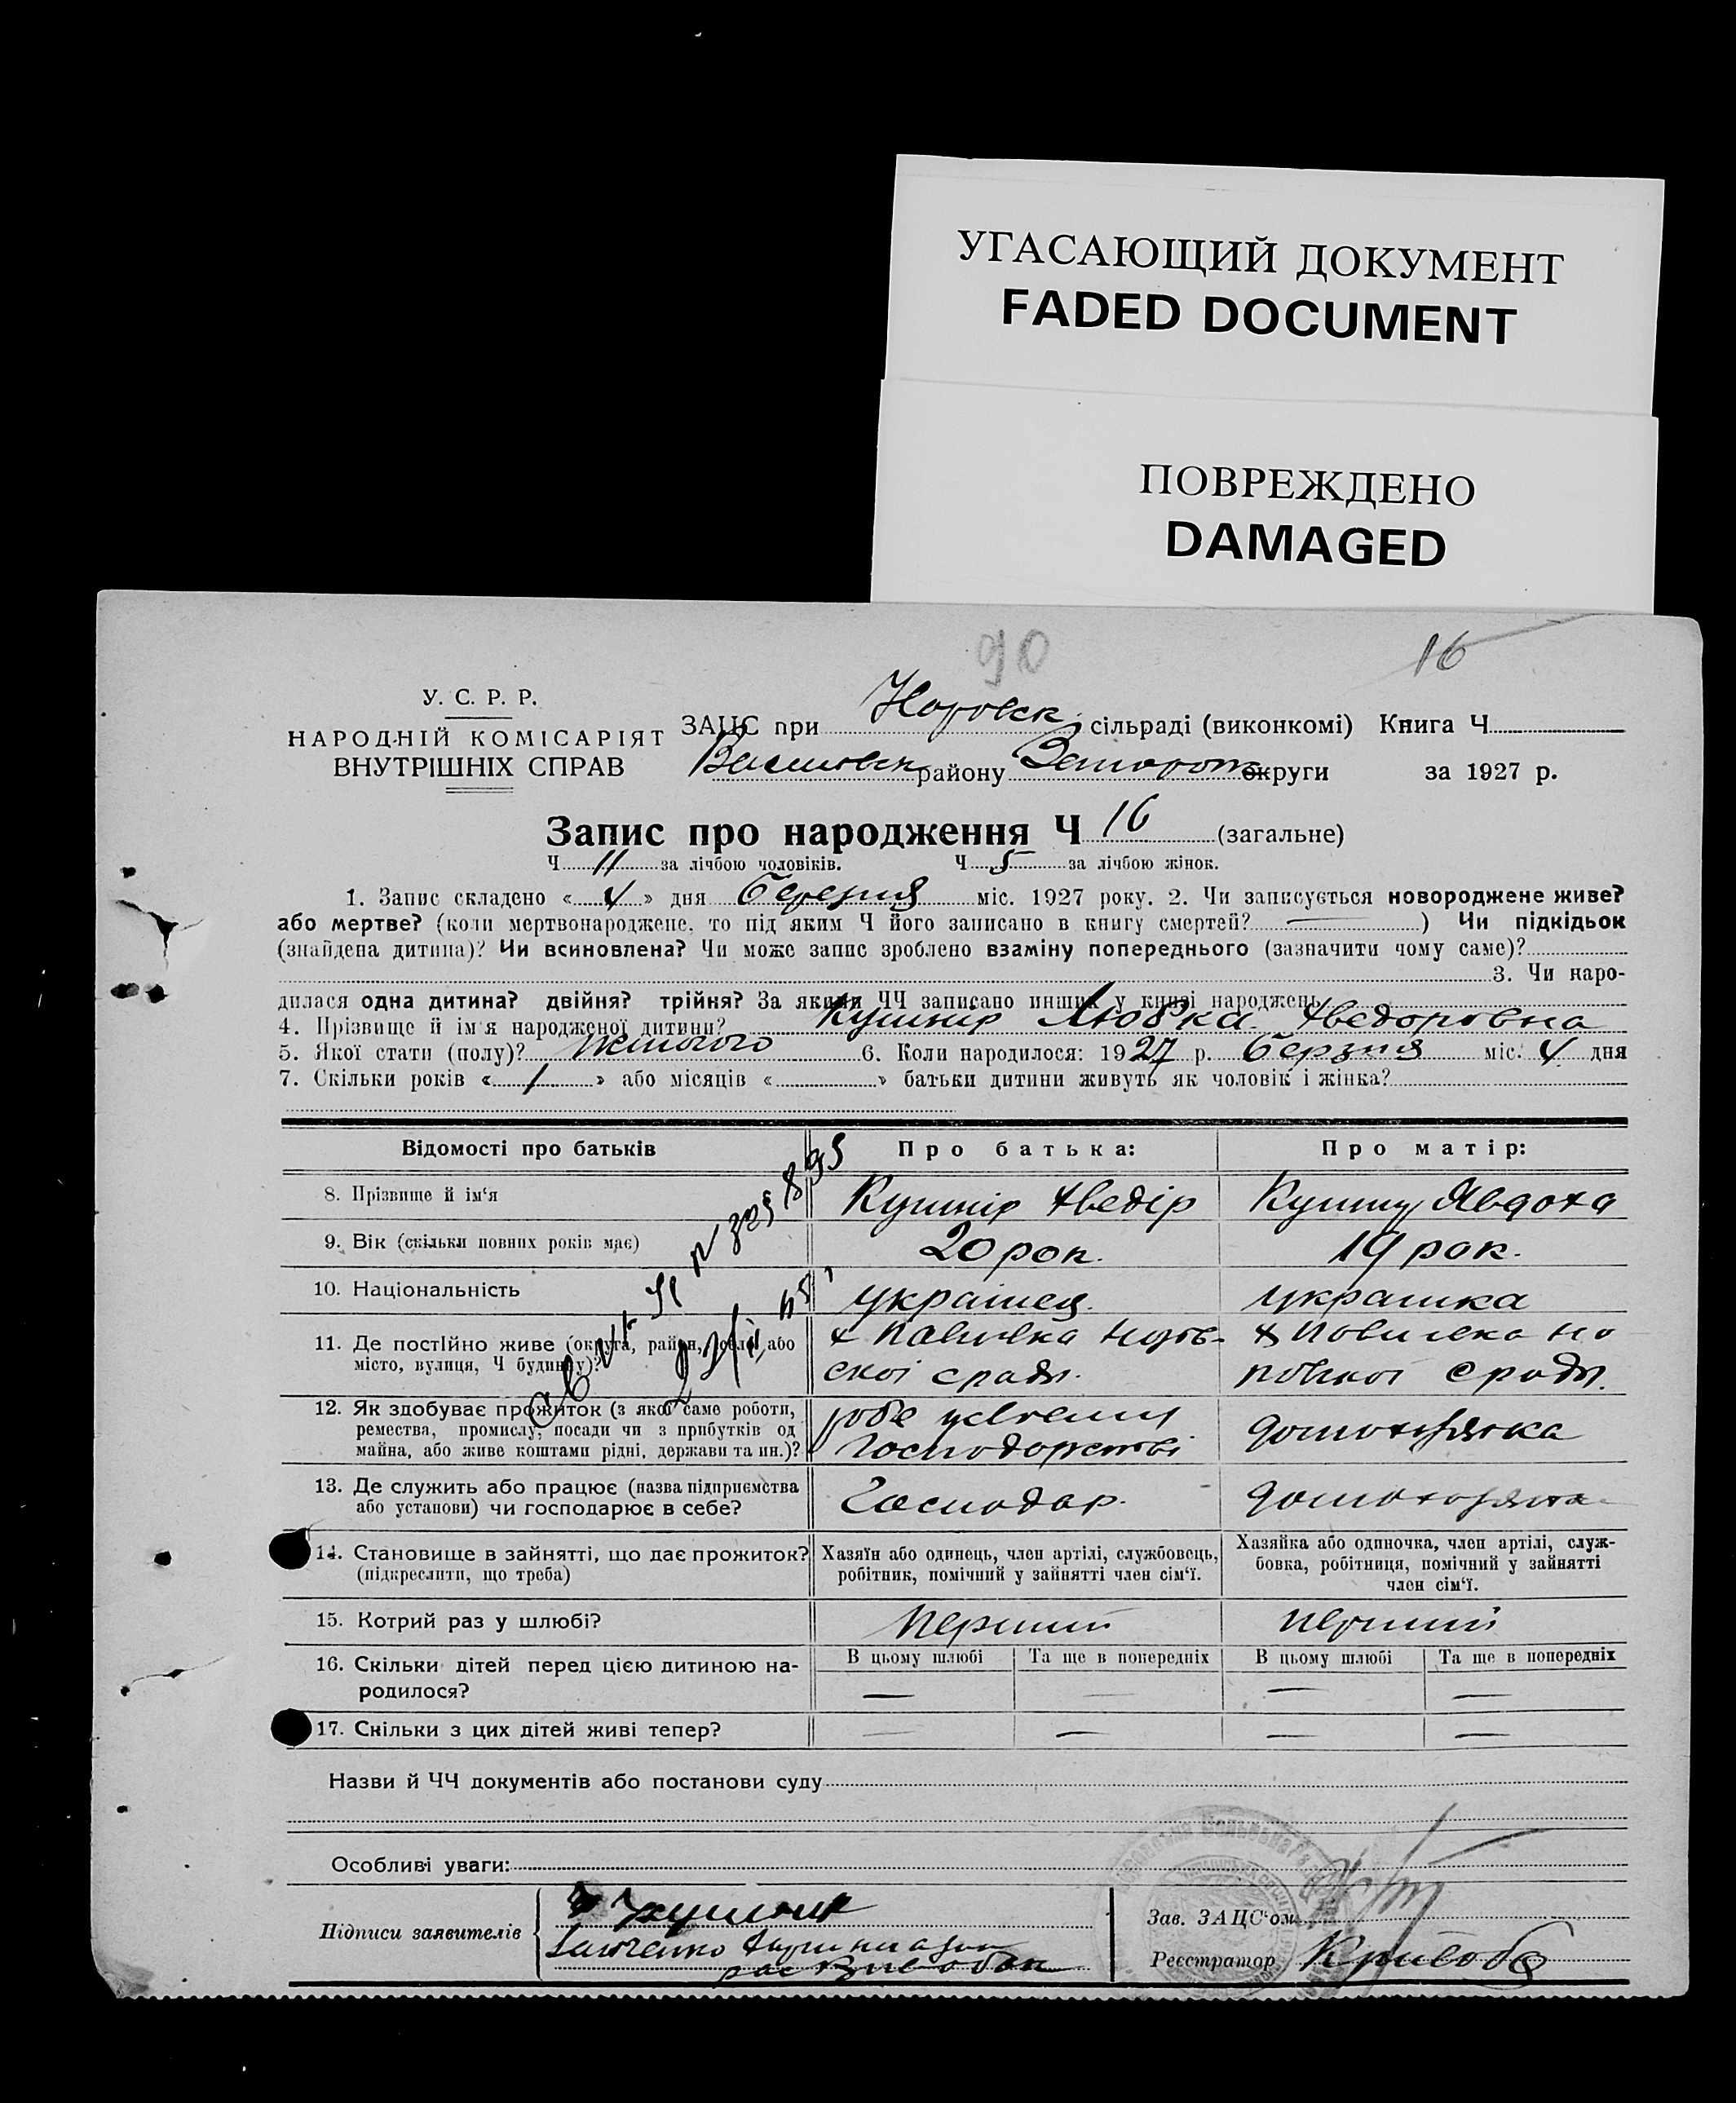 УГАСАЮЩИЙ ДОКУМЕНТ
FADED DOCUMENT
ПОВРЕЖДЕНО
DAMAGED
90
16
У. С. Р. Р.
НАРОДНІЙ КОМІСАРІЯТ
ВНУТРІШНІХ СПРАВ
ЗАЦС при сільраді (виконкомі) Книга Ч
району округи за 1927 р.
Запис про народження Ч 16 (загальне)
Ч 11 за лічбою чоловіків. Ч 5 за лічбою жінок.
1. Запис складено « 4 » дня березня міс. 1927 року. 2. Чи записується новороджене живе?
або мертве? (коли мертвонароджене, то під яким Ч його записано в книгу смертей? ) Чи підкідьок
(знайдена дитина)? Чи всиновлена? Чи може запис зроблено взаміну попереднього (зазначити чому саме)?
3. Чи наро-
дилася одна дитина? двійня? трійня? За якими ЧЧ записано инших у книзі народжень
4. Прізвище й ім'я народженої дитини? Кушнір Любка Хведоровна
5. Якої стати (полу)? жіночого 6. Коли народилося: 1927 р. березня міс. 4 дня
7. Скільки років « 1 » або місяців « » батьки дитини живуть як чоловік і жінка?
Відомості про батьків Про батька: Про матір:
8. Прізвище й ім'я Кушнір Хведір Кушнір Явдоха
9. Вік (скільки повних років має) 20 рок. 19 рок.
10. Національність українец українка
11. Де постійно живе (округа, район, село, або
місто, вулиця, Ч будинку)?
12. Як здобуває прожиток (з якої саме роботи,
ремества, промислу, посади чи з прибутків од
майна, або живе коштами рідні, держави та ин.)?
господорстві домохазяйка
13. Де служить або працює (назва підприємства
або установи) чи господарює в себе?
Господар домохазяйка
14. Становище в зайнятті, що дає прожиток?
(підкреслити, що треба)
Хазяїн або одинець, член артілі, службовець,
робітник, помічний у зайнятті член сім'ї.
Хазяйка або одиночка, член артілі, служ-
бовка, робітниця, помічний у зайнятті
член сім'ї.
15. Котрий раз у шлюбі? перший перший
16. Скільки дітей перед цією дитиною на-
родилося?
В цьому шлюбі Та ще в попередніх В цьому шлюбі Та ще в попередніх
17. Скільки з цих дітей живі тепер?
Назви й ЧЧ документів або постанови суду
Особливі уваги:
Підписи заявителів
Зав. ЗАЦС'ом
Реєстратор